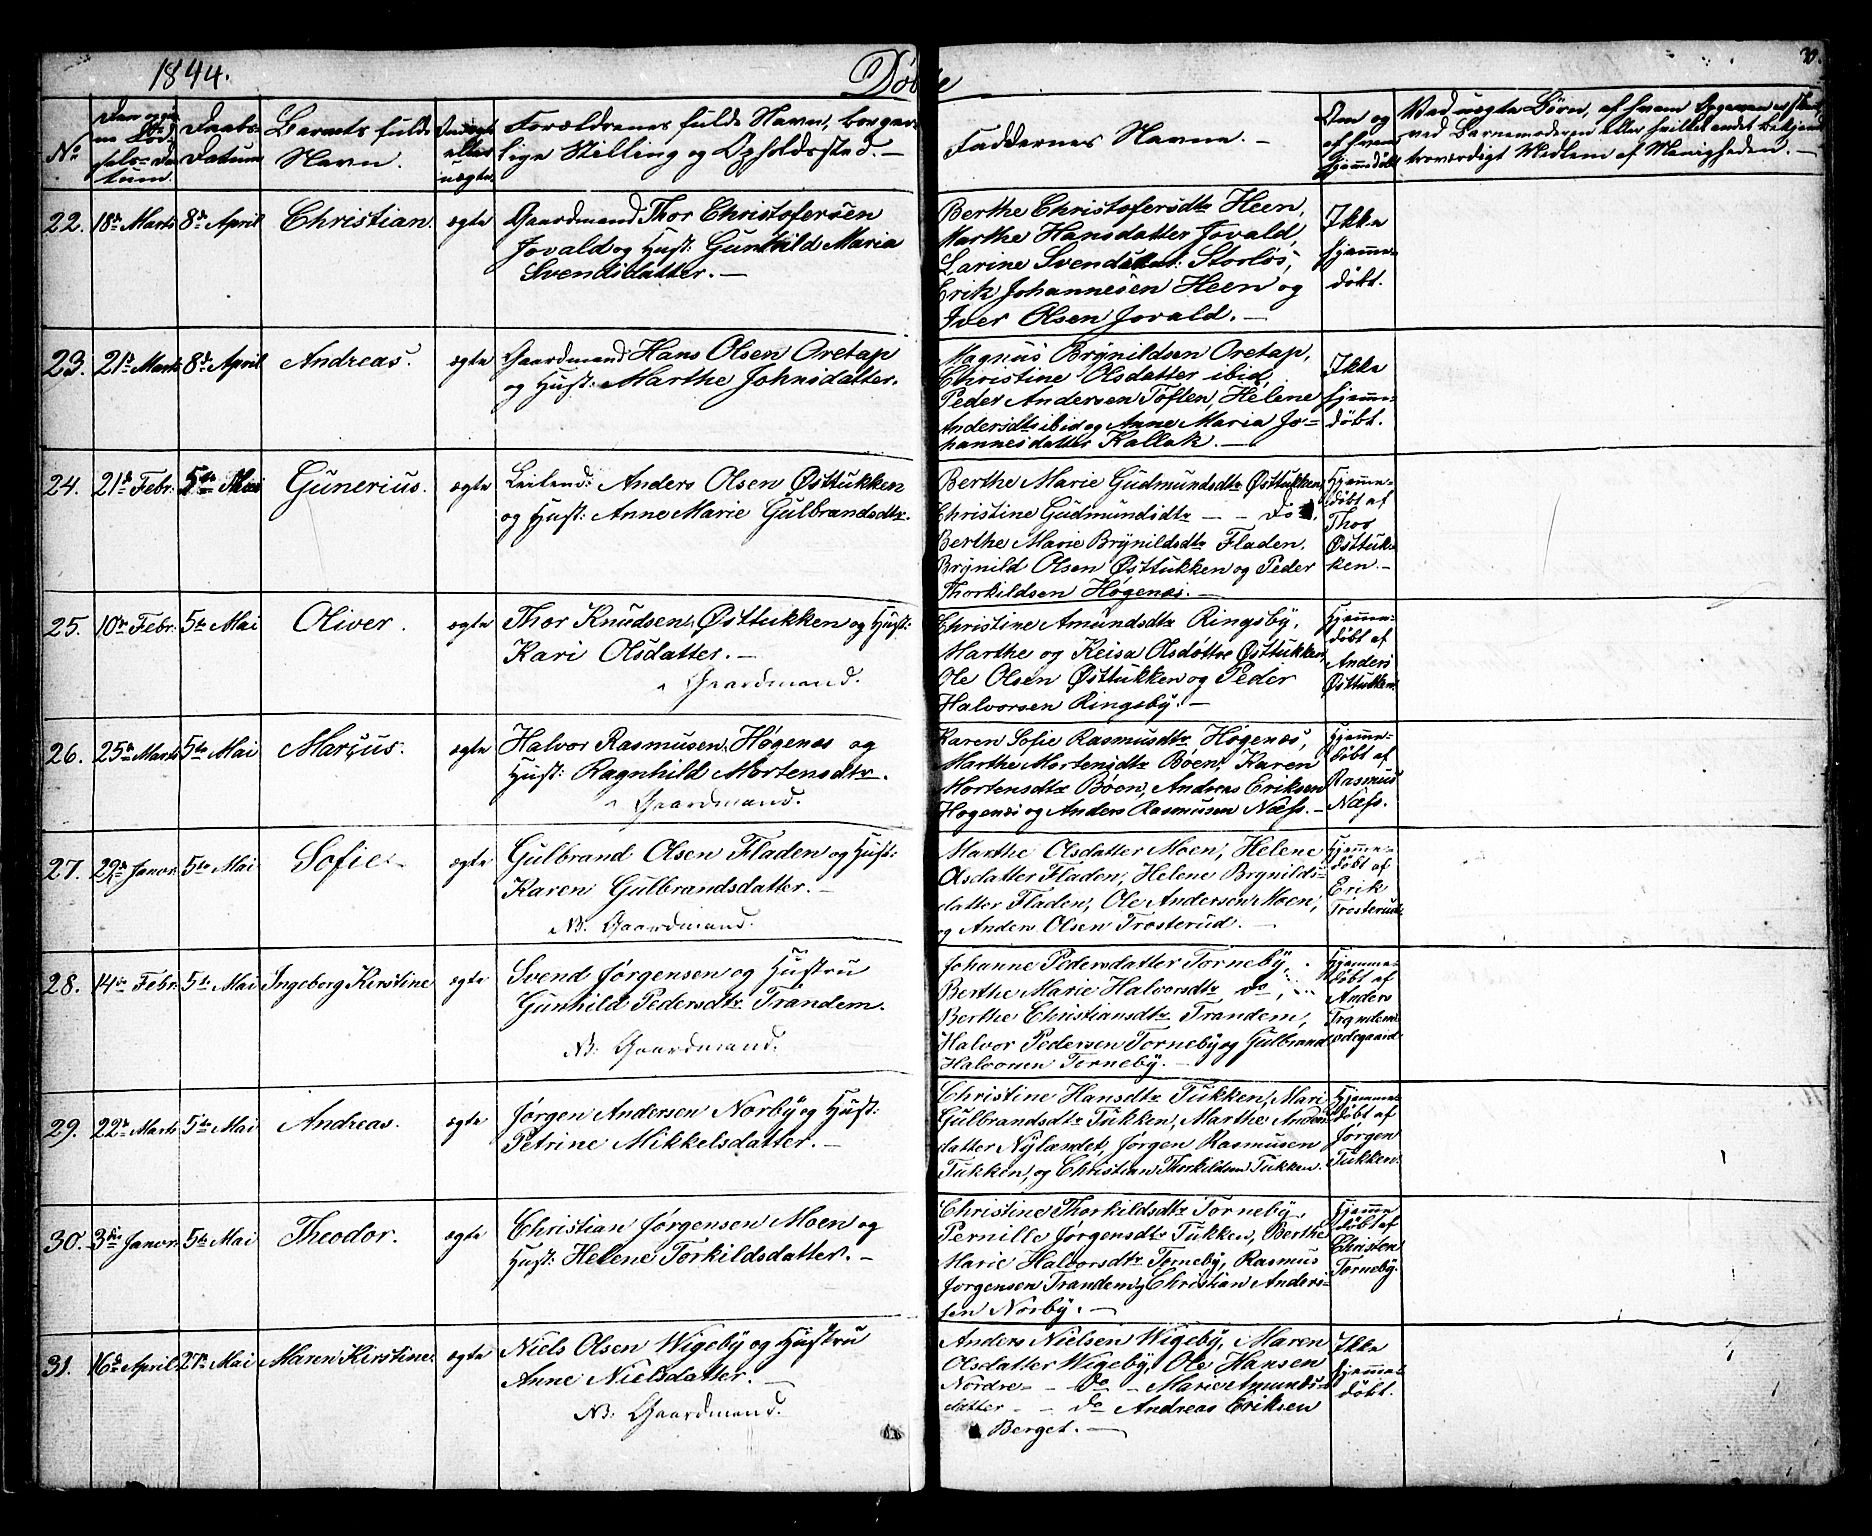 1844.
Døbte
30.
No
Den og fø
Fødselsdatum.
Daabs-
Datum
Barnets fulde
Navn.
Om ægte
eller
uægte.
Forældrenes fulde Navn, borger-
lige Stilling og Opholdssted. —
Faddernes Navne. —
Om og
af hvem
hjemmedøbt
Ved uægte Børn, af hvem Opgaven er skeet,
ved Barnemoderen eller hvilket andet bekjendt
troværdigt Medlem af Menigheden. —
22. 18de Marts 8de April Christian. ægte
Gaardmand Thor Christofersen
Jovald og Hust: Gunhild Maria
Svendsdatter. —
Berthe Christofersdtr Heen,
Marthe Hansdatter Jovald,
Larine Svendsdat: Storløs,
Erik Johannesen Heen og
Iver Olsen Jovald. —
Ikke
hjemme-
døbt.
23. 21de Marts 8de April Andreas. ægte
Gaardmand Hans Olsen Oretap
og Hust: Marthe Johnsdatter.
Magnus Brynildsen Oretap,
Christine Olsdatter ibid,
Peder Andersen Toften, Helene
Andersdtr ibid og Anne Maria Jo-
hannesdatter Kallak. —
Ikke
hjemme-
døbt.
24. 21de Febr. 5te Mai Gunerius. ægte
Leilend: Anders Olsen Østtukken
og Hust: Anne Marie Gulbrandsdtr.
Berthe Marie Gudmundsdtr Østtukken,
Christine Gudmundsdtr — - do,
Berthe Marie Brynildsdtr Fladen,
Brynild Olsen Østtukken og Peder
Thorkildsen Høgenæs. —
Hjemme-
døbt af
Thor
Østtuk-
ken. —
25. 10de Febr. 5te Mai Oliver. ægte
Thor Knudsen Østtukken og Hust:
Kari Olsdatter. —
Gaardmand.
Christine Amundsdtr Ringsby,
Marthe og Keisa Olsdøttre Østtukken,
Ole Olsen Østtukken og Peder
Halvorsen Ringsby. —
Hjemme-
døbt af
Anders
Østtukken
26. 25de Marts 5te Mai Marius. ægte
Halvor Rasmusen Høgenæs og
Hust: Ragnhild Mortensdtr.
Gaardmand.
Karen Sofie Rasmusdtr Høgenæs,
Marthe Mortensdtr Bøen, Karen
Mortensdtr Bøen, Andreas Eriksen
Høgenæs og Anders Rasmusen Næss. —
Hjemme-
døbt af
Rasmus
Næss.
27. 29de Januar 5te Mai Sofie. ægte
Gulbrand Olsen Fladen og Hust:
Karen Gulbrandsdatter. —
NB. Gaardmand.
Marthe Olsdatter Moen, Helene
Olsdatter Fladen, Helene Brynilds-
datter Fladen, Ole Andersen Moen,
og Anders Olsen Trosterud. —
Hjemme-
døbt af
Erik
Trosterud.
28. 14de Febr. 5te Mai Ingeborg Kirstine ægte
Svend Jørgensen og Hustru
Gunhild Pedersdtr Trandem.
NB. Gaardmand.
Johanne Pedersdatter Torneby,
Berthe Marie Halvorsdtr do,
Berthe Christiansdtr Trandem,
Halvor Pedersen Torneby og Gulbrand
Halvorsen Torneby. —
Hjemme-
døbt af
Anders
Trandem-
ødegaard
29. 22de Marts 5te Mai Andreas. ægte
Jørgen Andersen Norby og Hust:
Petrine Mikkelsdatter. —
Christine Hansdtr Tukken, Mari
Gulbrandsdtr Tukken, Marthe Anders
datter Nylændet, Jørgen Rasmusen
Tukken, og Christian Thorkildsen Tukken.
Hjemme-
døbt af
Jørgen
Tukken.
30. 3die Januar 5te Mai Theodor. ægte
Christian Jørgensen Moen og
Hust: Helene Torkildsdatter. —
Christine Thorkildsdtr Torneby,
Pernille Jørgensdtr Tukken, Berthe
Marie Halvorsdtr Torneby, Rasmus
Jørgensen Trandem, Christian Anders-
sen Norby. —
Hjemme
døbt af
Christen
Torneby.
31. 16de April 27de Mai Maren Kirstine. ægte
Niels Olsen Wigeby og Hustru
Anne Nielsdatter. —
NB. Gaardmand.
Anders Nielsen Wigeby, Maren
Olsdatter Wigeby, Ole Hansen
Nordre - - do - Marie Amunds-
datter - - do Andreas Eriksen
Berget. —
Ikke
hjemme-
døbt.